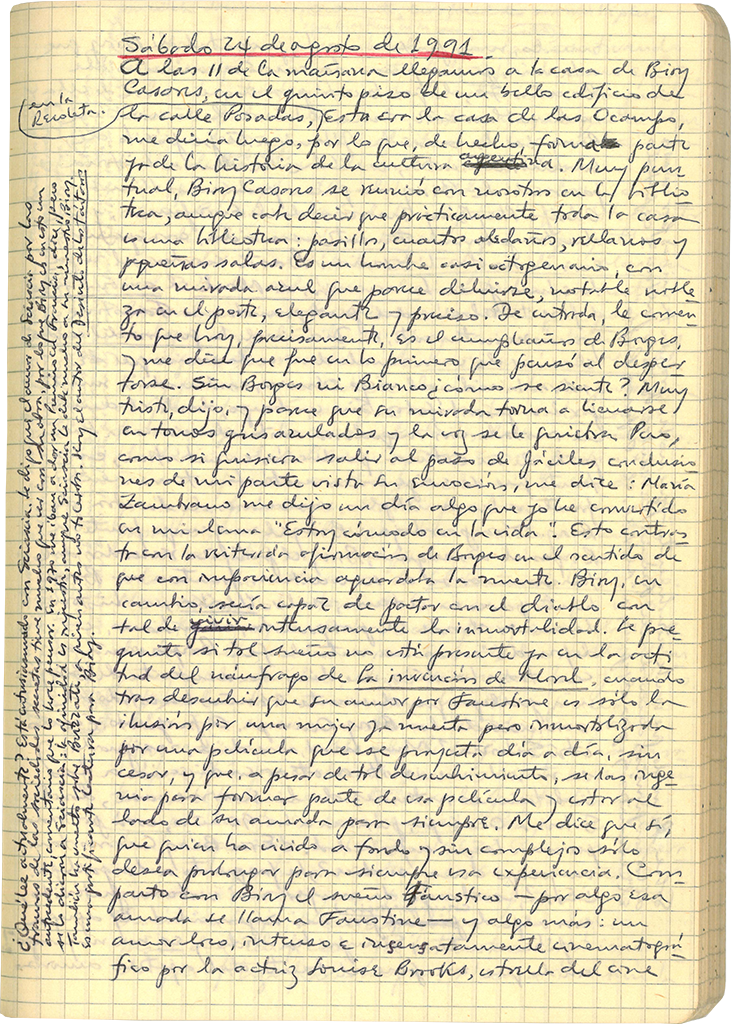 Sábado 24 de agosto de 1991.
A las 11 de la mañana llegamos a la casa de Bioy
Casares, en el quinto piso de un bello edificio de
la calle Posadas, Esta era la casa de las Ocampo,
en la
Recoleta.
me diría luego, por lo que, de hecho, forma parte
ya de la historia de la cultura argentina. Muy pun
tual, Bioy Casares se reunió con nosotros en la biblio
teca, aunque cabe decir que prácticamente toda la casa
es una biblioteca: pasillos, cuartos aledaños, rellanos y
pequeñas salas. Es un hombre casi octogenario, con
una mirada azul que parece diluirse, notable noble-
za en el porte, elegante y preciso. De entrada, le comen-
to que hoy, precisamente, es el cumpleaños de Borges,
y me dice que fue en lo primero que pensó al desper
tarse. Sin Borges ni Bianco ¿cómo se siente? Muy
triste, dijo, y parece que su mirada torna a licuarse
en tonos grisazulados y la voz se le quiebra. Pero,
como si quisiera salir al paso de fáciles conclusio-
nes de mi parte vista su emoción, me dice: María
Zambrano me dijo un día algo que yo he convertido
en mi lema "Estoy cómodo en la vida". Esto contras-
ta con la reiterada afirmación de Borges en el sentido de
que con impaciencia aguardaba la muerte. Bioy, en
cambio, sería capaz de pactar con el diablo con
tal de vivir intensamente la inmortalidad. Le pre-
gunto si tal sueño no está presente ya en la acti-
tud del náufrago de La invención de Morel, cuando
tras descubrir que su amor por Faustine es sólo la
ilusión por una mujer ya muerta pero inmortalizada
por una película que se proyecta día a día, sin
cesar, y que, a pesar de tal descubrimiento, se las inge-
nia para formar parte de esa película y estar al
lado de su amada para siempre. Me dice que sí,
que quien ha vivido a fondo y sin complejos sólo
desea prolongar para siempre esa experiencia. Com-
parto con Bioy el sueño Fáustico — por algo esa
amada se llama Faustine — y algo más: un
amor loco, intenso e insensatamente cinematográ-
fico por la actriz Louise Brooks, estrella del cine
¿Qué lee actualmente? Está entusiasmado con Sciascia. Le dijo que el amor de Sciascia por las
tramas de las sociedades secretas tiene mucho que ver con su obra, por lo que Bioy
se lo dieron a Sciascia:
También ha escrito sobre Buzzati, a quien antes no había leído. Hoy el autor del Desierto de los Tártaros
es una